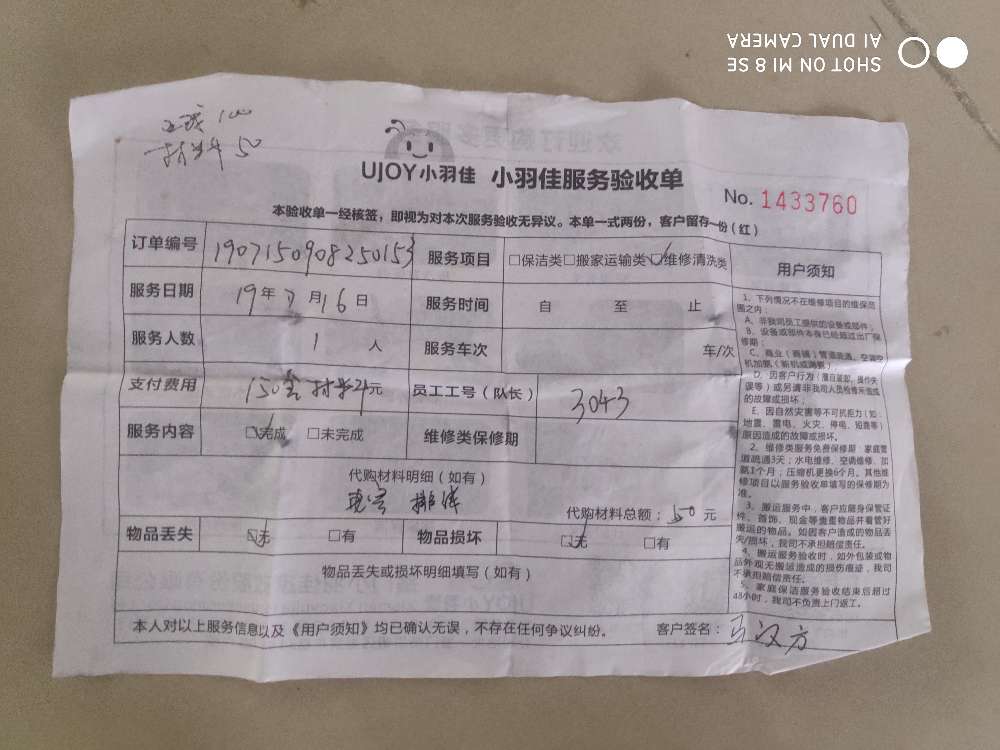 SHOT ON MI 8 SE
AI DUAL CAMERA
100
材料 50
UJOY小羽佳 小羽佳服务验收单
No. 1433760
本验收单一经核签，即视为对本次服务验收无异议。本单一式两份，客户留存一份（红）
订单编号 1907150908250153 服务项目 □保洁类□搬家运输类☑维修清洗类
服务日期 19年7月16日 服务时间 自 至 止
服务人数 1 人 服务车次 车/次
支付费用 150含材料元 员工工号（队长） 3043
服务内容 ☑完成 □未完成 维修类保修期
代购材料明细（如有）
代购材料总额：50元
物品丢失 ☑无 □有 物品损坏 ☑无 □有
物品丢失或损坏明细填写（如有）
本人对以上服务信息以及《用户须知》均已确认无误，不存在任何争议纠纷。 客户签名：王汉方
用户须知
1、下列情况不在维修项目的维保范
围之内：
A、非我司员工提供的设备或部件；
B、设备或部件本身已经超过出厂保
修期；
C、商业（商铺）管道疏通、空调空
机加氟（新机或漏氟）
D、因客户行为（擅自装卸、操作失
误等）或另请非我司人员检修所造成
的故障或损坏；
E、因自然灾害等不可抗拒力（如：
地震、雷电、火灾、停电、短路等）
原因造成的故障或损坏。
2、维修类服务免费保修期：家庭管
道疏通3天；水电维修、空调维修、加
氟1个月；压缩机更换6个月。其他维
修项目以服务验收单填写的保修期为
准。
3、搬运服务中，客户应随身保管证
件、首饰、现金等贵重物品并看管好
搬运的物品。如因客户造成的物品丢
失/损坏，我司不承担赔偿责任。
4、搬运服务验收时，如外包装或物
品外观无搬运造成的损伤痕迹，我司
不承担赔偿责任。
5、家庭保洁服务验收结束后超过
48小时，我司不负责上门返工。